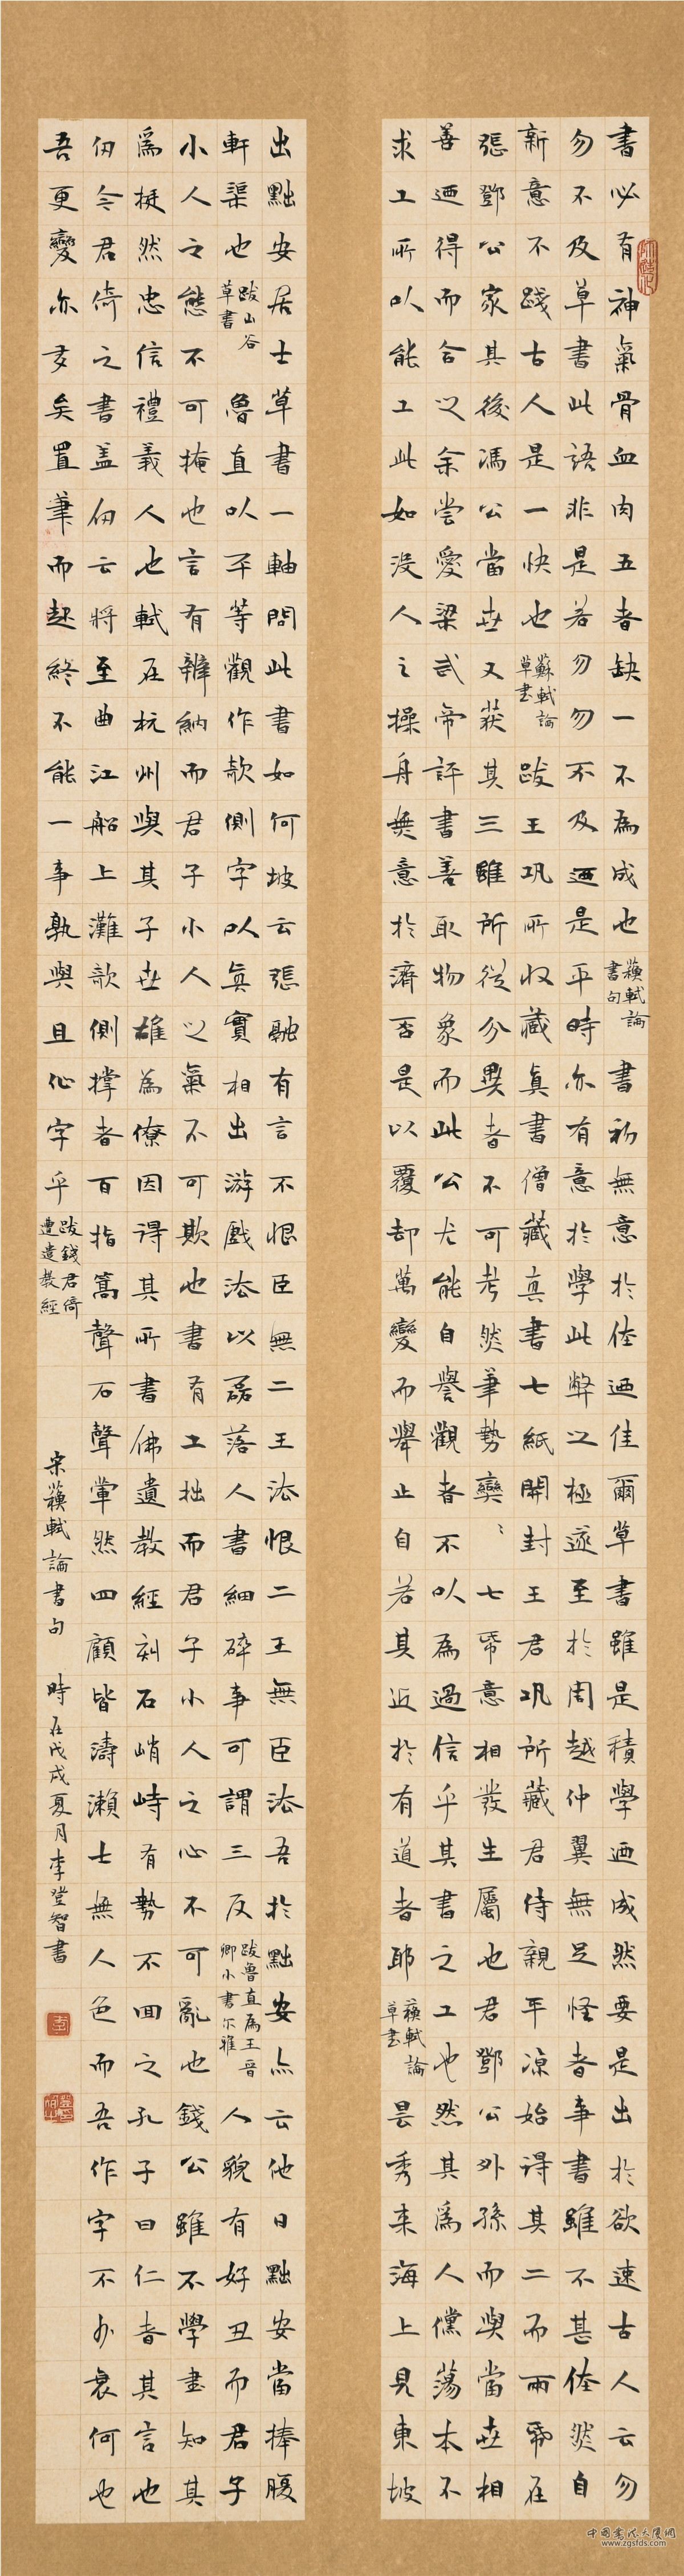 書必有神氣骨血肉五者缺一不為成也蘇軾論書句書初無意於佳迺佳爾草書雖是積學迺成然要是出於欲速古人云勿
勿不及草書此語非是若勿勿不及迺是平時亦有意於學此弊之極遂至於周越仲翼無足怪者事書雖不甚佳然自
新意不踐古人是一快也蘇軾論草書跋王巩所收藏真書僧藏真書七紙開封王君巩所藏君侍親平涼始得其二而兩帋在
張鄧公家其後馮公當世又获其三雖所從分異者不可考然筆勢奕〻七帋意相發生屬也君鄧公外孫而與當世相
善迺得而合之余嘗愛梁武帝評書善取物象而此公尤能自譽觀者不以為過信乎其書之工也然其為人儻蕩本不
求工所以能工此如没人之操舟無意於濟否是以覆却萬變而舉止自若其近於有道者耶蘇軾論草書昙秀来海上見東坡
出黠安居士草書一軸問此書如何坡云張融有言不恨臣無二王法恨二王無臣法吾於黠安亦云他日黠安當捧腹
軒渠也跋山谷草書魯直以平等觀作欹側字以真實相出游戲法以磊落人書細碎事可謂三反跋魯直為王晋卿小書尔雅人貌有好丑而君子
小人之態不可掩也言有辨納而君子小人之氣不可欺也書有工拙而君子小人之心不可亂也錢公雖不學書知其
為挺然忠信禮義人也軾在杭州與其子世雄為僚因得其所書佛遺教經刻石峭峙有勢不回之孔子曰仁者其言也
仞今君倚之書盖仞云將至曲江船上灘欹側撑者百指篙聲石聲犖然四顧皆濤瀨士無人色而吾作字不少衰何也
吾更變亦多矣置筆而起終不能一事孰與且作字乎跋錢君倚遺教經
宋蘇軾論書句 時在戊戌夏月李登智書
中國書法大廈網
www.zgsfds.com